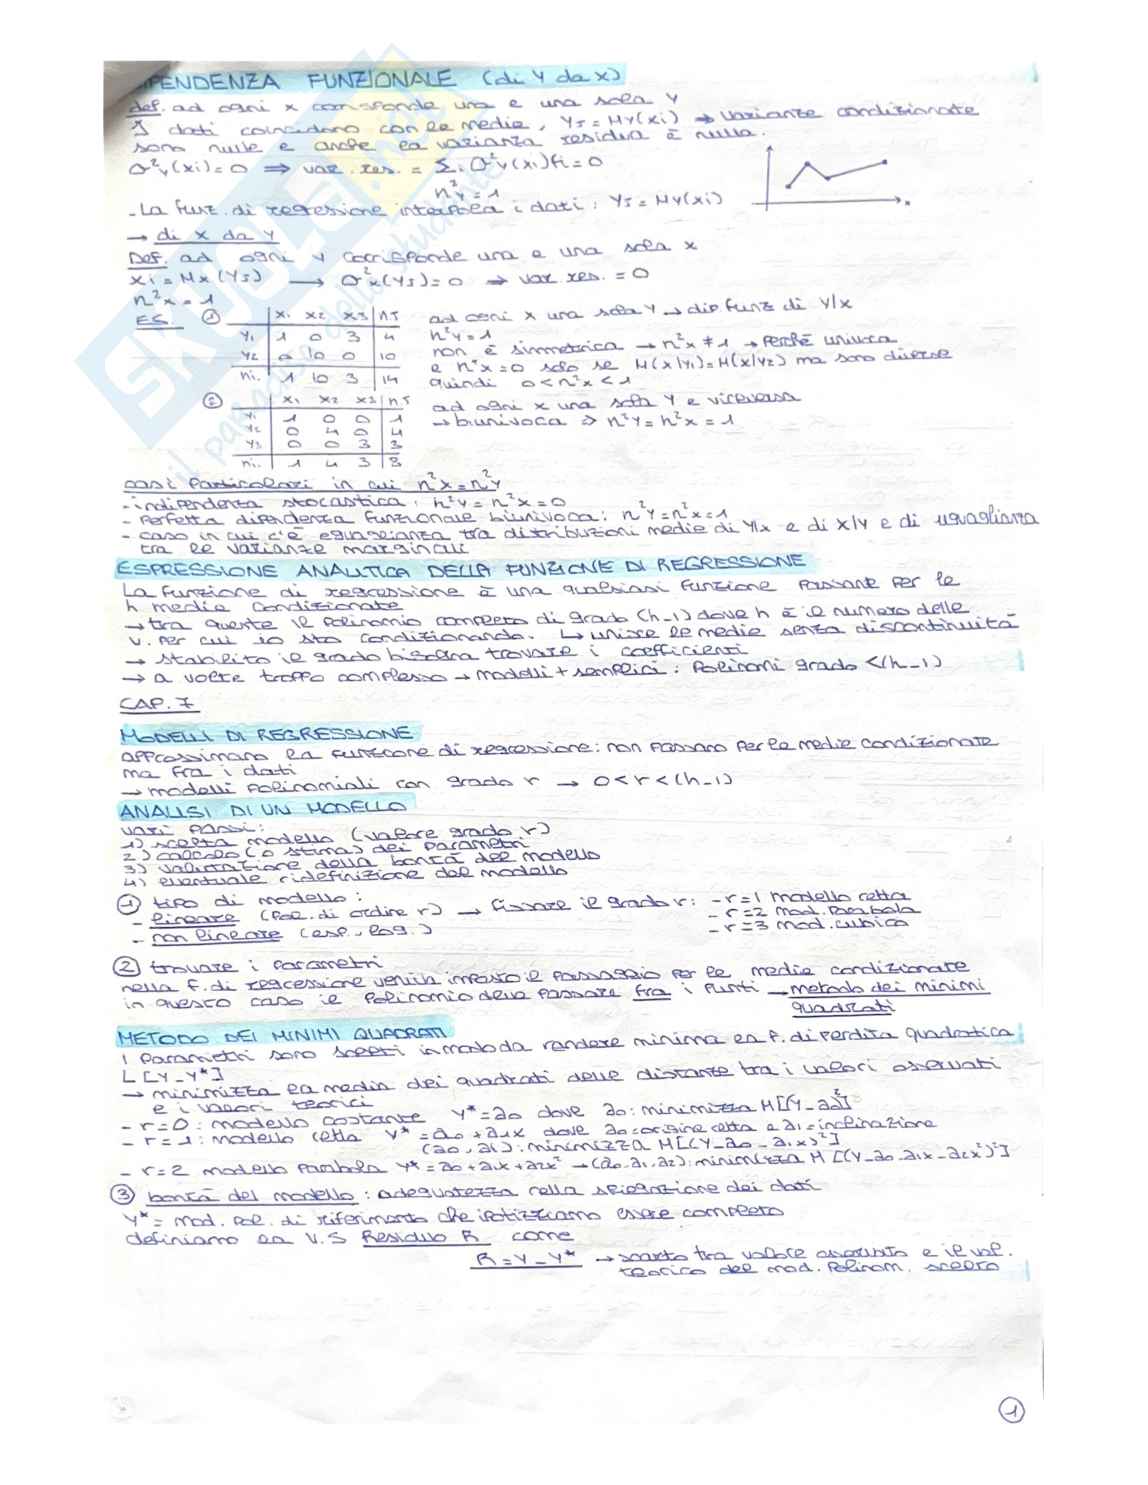 DIPENDENZA FUNZIONALE (di Y da X)
def. ad ogni x corrisponde una e una sola Y
I dati coincidono con le medie, YJ = MY(xi) → varianze condizionate
sono nulle e anche la varianza residua è nulla.
σ²Y(xi)=0 ⇒ var. res. = Σi σ²Y(xi)fi=0
η²Y=1
- La funz. di regressione interpola i dati: YJ = MY(xi)
→ di X da Y
Def. ad ogni Y corrisponde una e una sola x
xi = Mx(YJ) → σ²x(YJ)=0 → var. res. = 0
η²x = 1
ES. ① x1 x2 x3 nJ
Y1 1 0 3 4
Y2 0 10 0 10
ni. 1 10 3 14
ad ogni x una sola Y → dip. funz di Y/X
η²Y=1
non è simmetrica → η²x ≠ 1 → perché univoca
e η²x=0 solo se M(x|Y1)=M(x|Y2) ma sono diverse
quindi 0<η²x<1
② x1 x2 x3 nJ
Y1 1 0 0 1
Y2 0 4 0 4
Y3 0 0 3 3
ni. 1 4 3 8
ad ogni x una sola Y e viceversa
→ biunivoca ⇒ η²Y = η²x = 1
casi particolari in cui η²x = η²Y
- indipendenza stocastica: η²Y = η²x = 0
- Perfetta dipendenza funzionale biunivoca: η²Y = η²x = 1
- caso in cui c'è eguaglianza tra distribuzioni medie di Y/x e di x/Y e di uguaglianza
tra le varianze marginali
ESPRESSIONE ANALITICA DELLA FUNZIONE DI REGRESSIONE
La funzione di regressione è una qualsiasi funzione passante per le
h medie condizionate
→ tra queste il polinomio completo di grado (h-1) dove h è il numero delle
v. per cui io sto condizionando. ↳ unisce le medie senza discontinuità
→ stabilito il grado bisogna trovare i coefficienti
→ a volte troppo complesso → modelli + semplici: polinomi grado <(h-1)
CAP. 7
MODELLI DI REGRESSIONE
approssimano la funzione di regressione: non passano per le medie condizionate
ma fra i dati
→ modelli polinomiali con grado r → 0<r<(h-1)
ANALISI DI UN MODELLO
vari passi:
1) scelta modello (valore grado r)
2) calcolo (o stima) dei parametri
3) valutazione della bontà del modello
4) eventuale ridefinizione del modello
① tipo di modello:
- lineare (pol. di ordine r) → fissare il grado r: - r=1 modello retta
- r=2 mod. parabola
- non lineare (esp., log.)
- r=3 mod. cubico
② trovare i parametri
nella f. di regressione veniva imposto il passaggio per le medie condizionate
in questo caso il polinomio deve passare fra i punti → metodo dei minimi
quadrati
METODO DEI MINIMI QUADRATI
I parametri sono scelti in modo da rendere minima la f. di perdita quadratica
L[Y-Y*]
→ minimizza la media dei quadrati delle distanze tra i valori osservati
e i valori teorici
- r=0: modello costante Y*=a0 dove a0: minimizza M[(Y-a0)²]
- r=1: modello retta Y*=a0+a1x dove a0=origine retta e a1=inclinazione
(a0, a1): minimizza M[(Y-a0-a1x)²]
- r=2 modello parabola Y*=a0+a1x+a2x² → (a0,a1,a2): minimizza M[(Y-a0-a1x-a2x²)²]
③ bontà del modello: adeguatezza nella spiegazione dei dati
Y* = mod. pol. di riferimento che ipotizziamo essere completo
definiamo la V.S Residuo R come
R=Y-Y* → scarto tra valore osservato e il val.
teorico del mod. polinom. scelto
1
SKUOLA.net
il paradiso dello studente